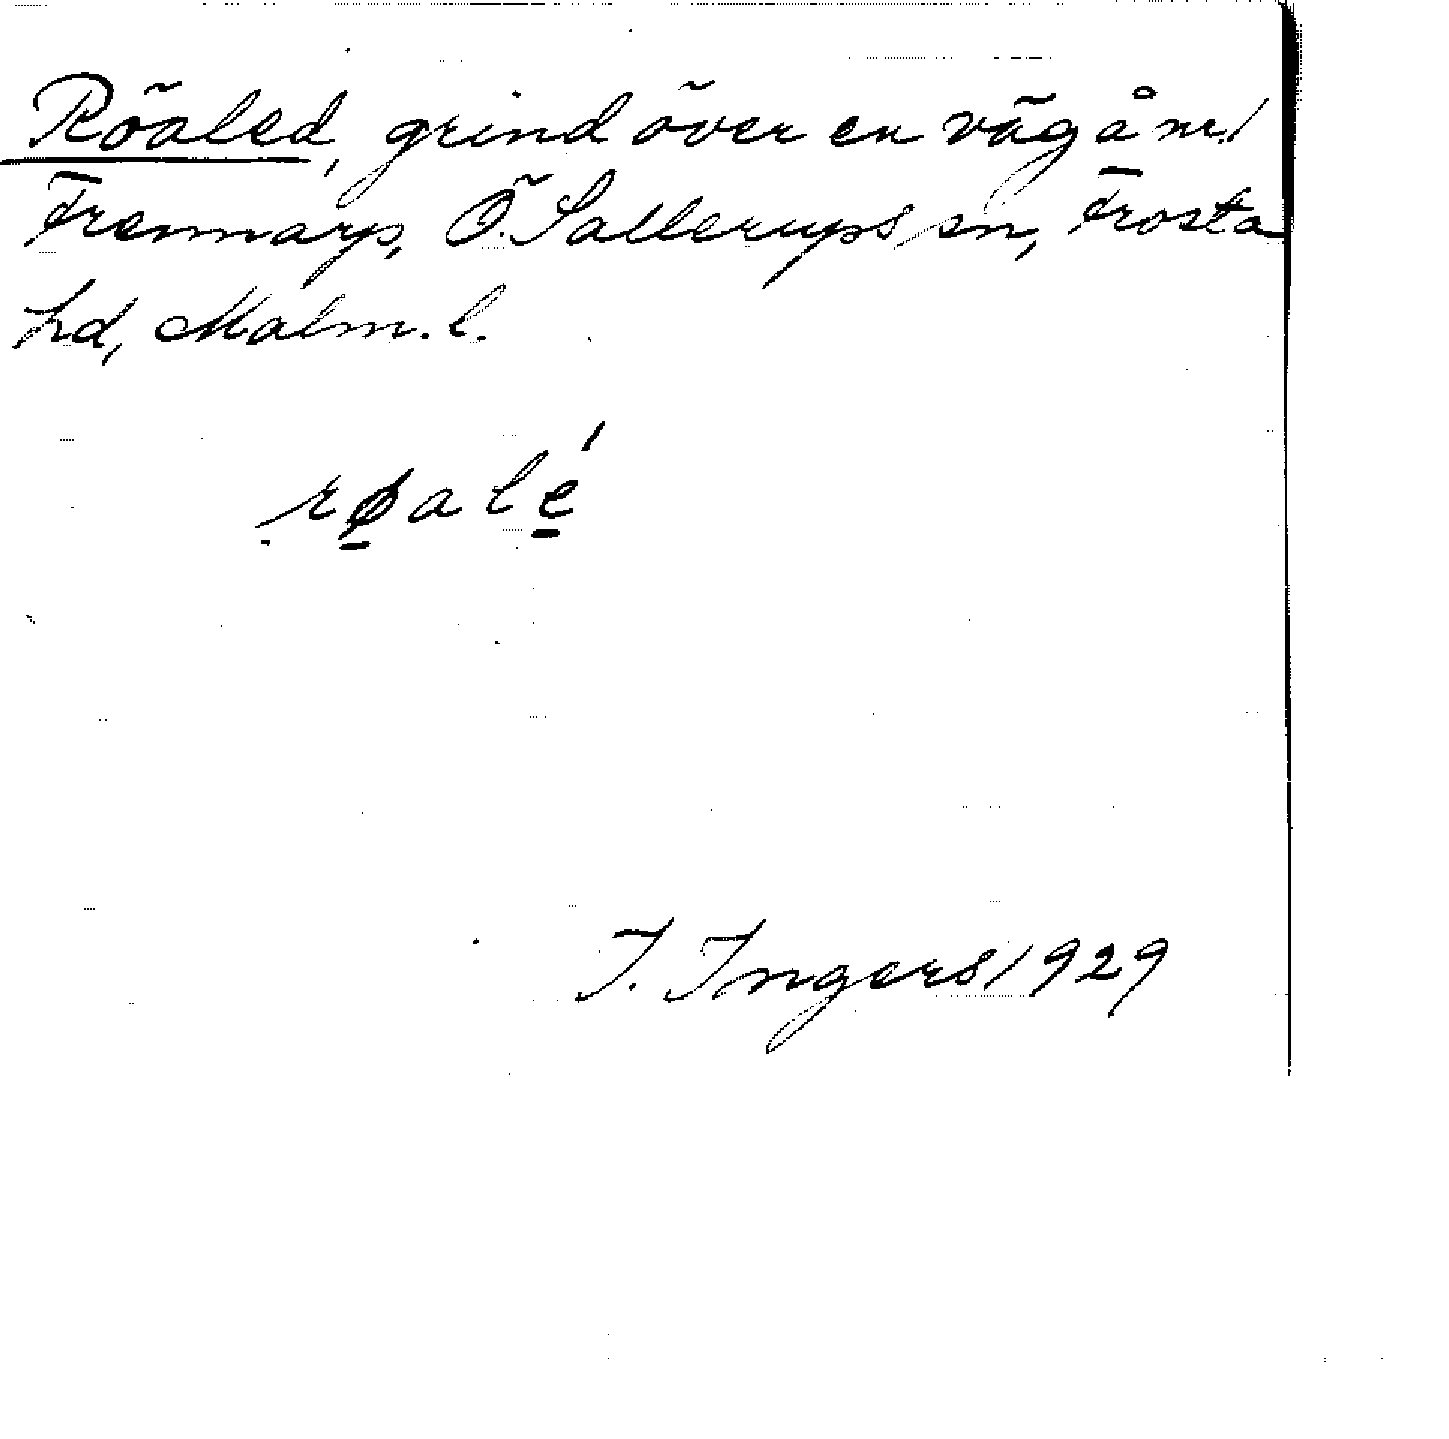 Röaled, grind över en väg å nr 1
Frennarp, Ö. Sallerups sn, Frosta
hd, Malm. l.
røalé
I. Ingers 1929